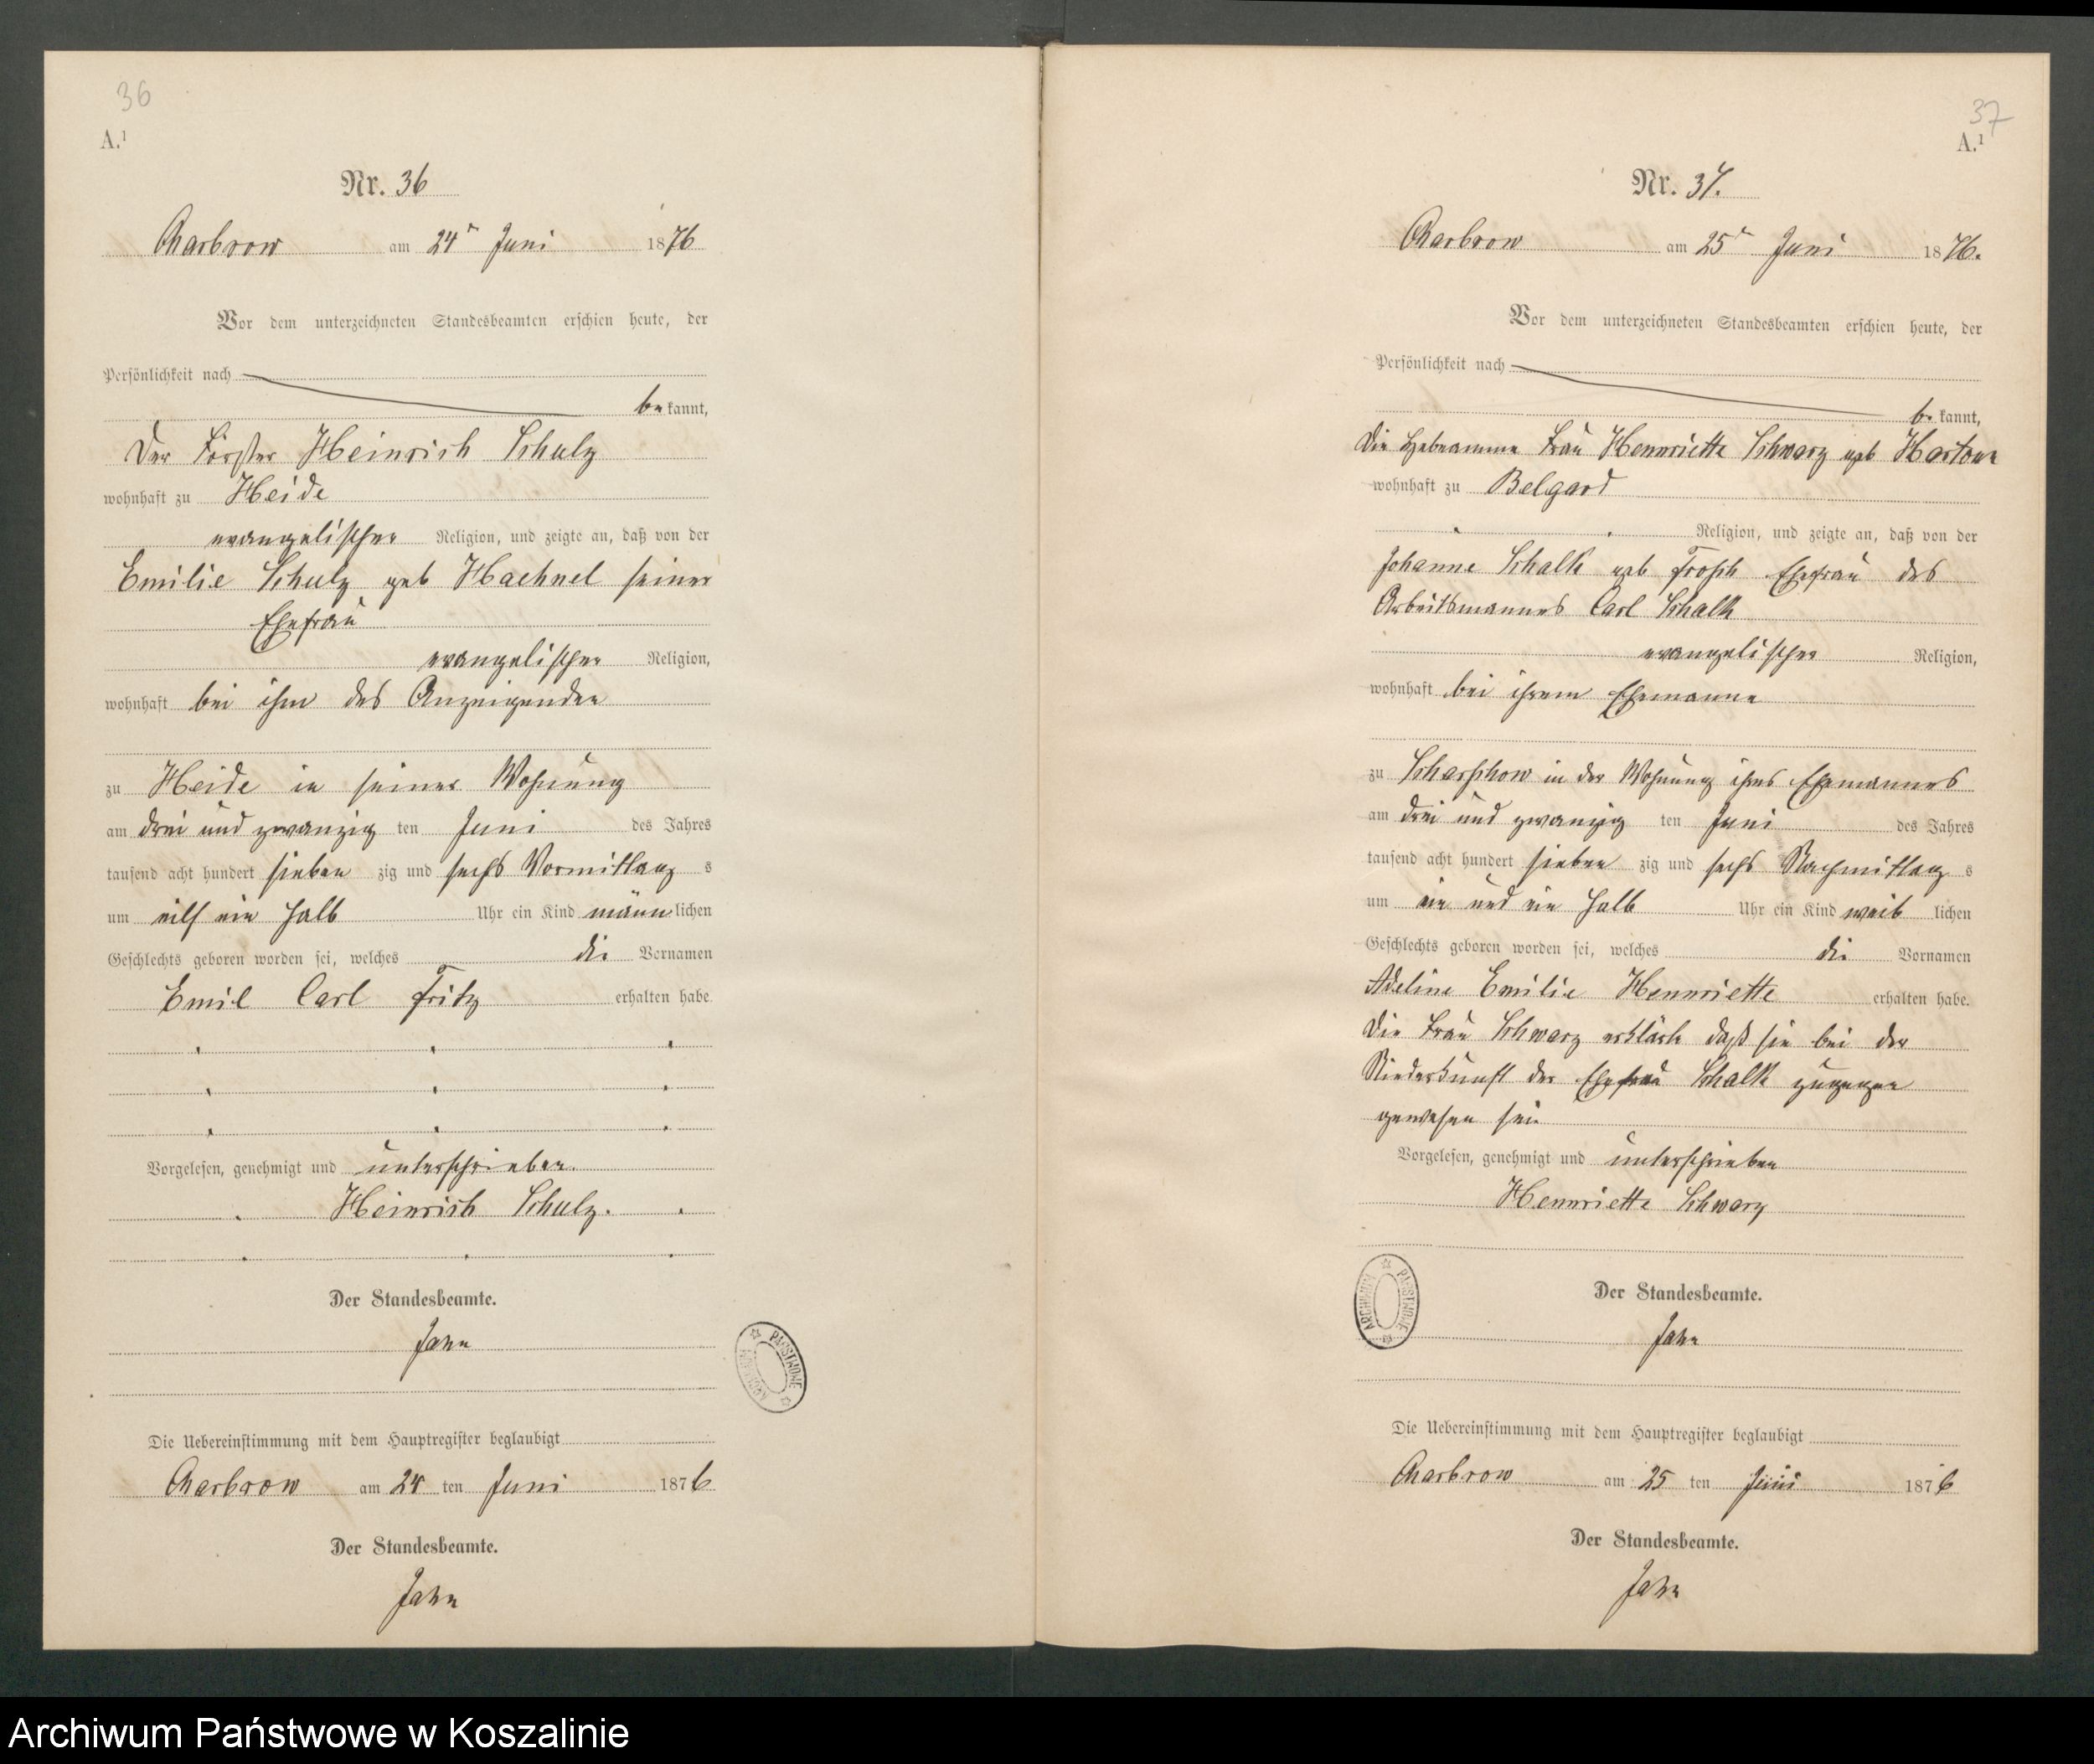 36
A.¹
Nr. 36
Charbrow am 24ᵗ Juni 1876
Vor dem unterzeichneten Standesbeamten erschien heute, der
Persönlichkeit nach
bekannt,
Der Förster Heinrich Schulz
wohnhaft zu Heide
evangelischer Religion, und zeigte an, daß von der
Emilie Schulz geb Haehnel seiner
Ehefrau
evangelischer Religion,
wohnhaft bei ihm des Anzeigenden
zu Heide in seiner Wohnung
am drei und zwanzig ten Juni des Jahres
tausend acht hundert sieben zig und sechs Vormittag s
um eilf ein halb Uhr ein Kind männlichen
Geschlechts geboren worden sei, welches die Vornamen
Emil Carl Fritz erhalten habe.
Vorgelesen, genehmigt und unterschrieben.
Heinrich Schulz.
Der Standesbeamte.
Jahn
ARCHIWUM PAŃSTWOWE
Die Uebereinstimmung mit dem Hauptregister beglaubigt
Charbrow am 24 ten Juni 1876
Der Standesbeamte.
Jahn
37
A.¹
Nr. 37.
Charbrow am 25ᵗ Juni 1876.
Vor dem unterzeichneten Standesbeamten erschien heute, der
Persönlichkeit nach
bekannt,
Die Hebeamme Frau Hennriette Schwarz geb
wohnhaft zu Belgard
Religion, und zeigte an, daß von der
Johanne Schalk geb Frosch Ehefrau des
Arbeitsmannes Carl Schalk
evangelischer Religion,
wohnhaft bei ihrem Ehemanne
zu Scharschow in der Wohnung ihres Ehemannes
am drei und zwanzig ten Juni des Jahres
tausend acht hundert sieben zig und sechs Nachmittag s
um ein und ein halb Uhr ein Kind weib lichen
Geschlechts geboren worden sei, welches die Vornamen
Adeline Emilie Hennriette erhalten habe.
Die Frau Schwarz erklärte daß sie bei der
Niederkunft der Ehefrau Schalk zugegen
gewesen sei.
Vorgelesen, genehmigt und unterschrieben
Hennriette Schwarz
ARCHIWUM PAŃSTWOWE
Der Standesbeamte.
Jahn
Die Uebereinstimmung mit dem Hauptregister beglaubigt
Charbrow am 25 ten Juni 1876
Der Standesbeamte.
Jahn
Archiwum Państwowe w Koszalinie